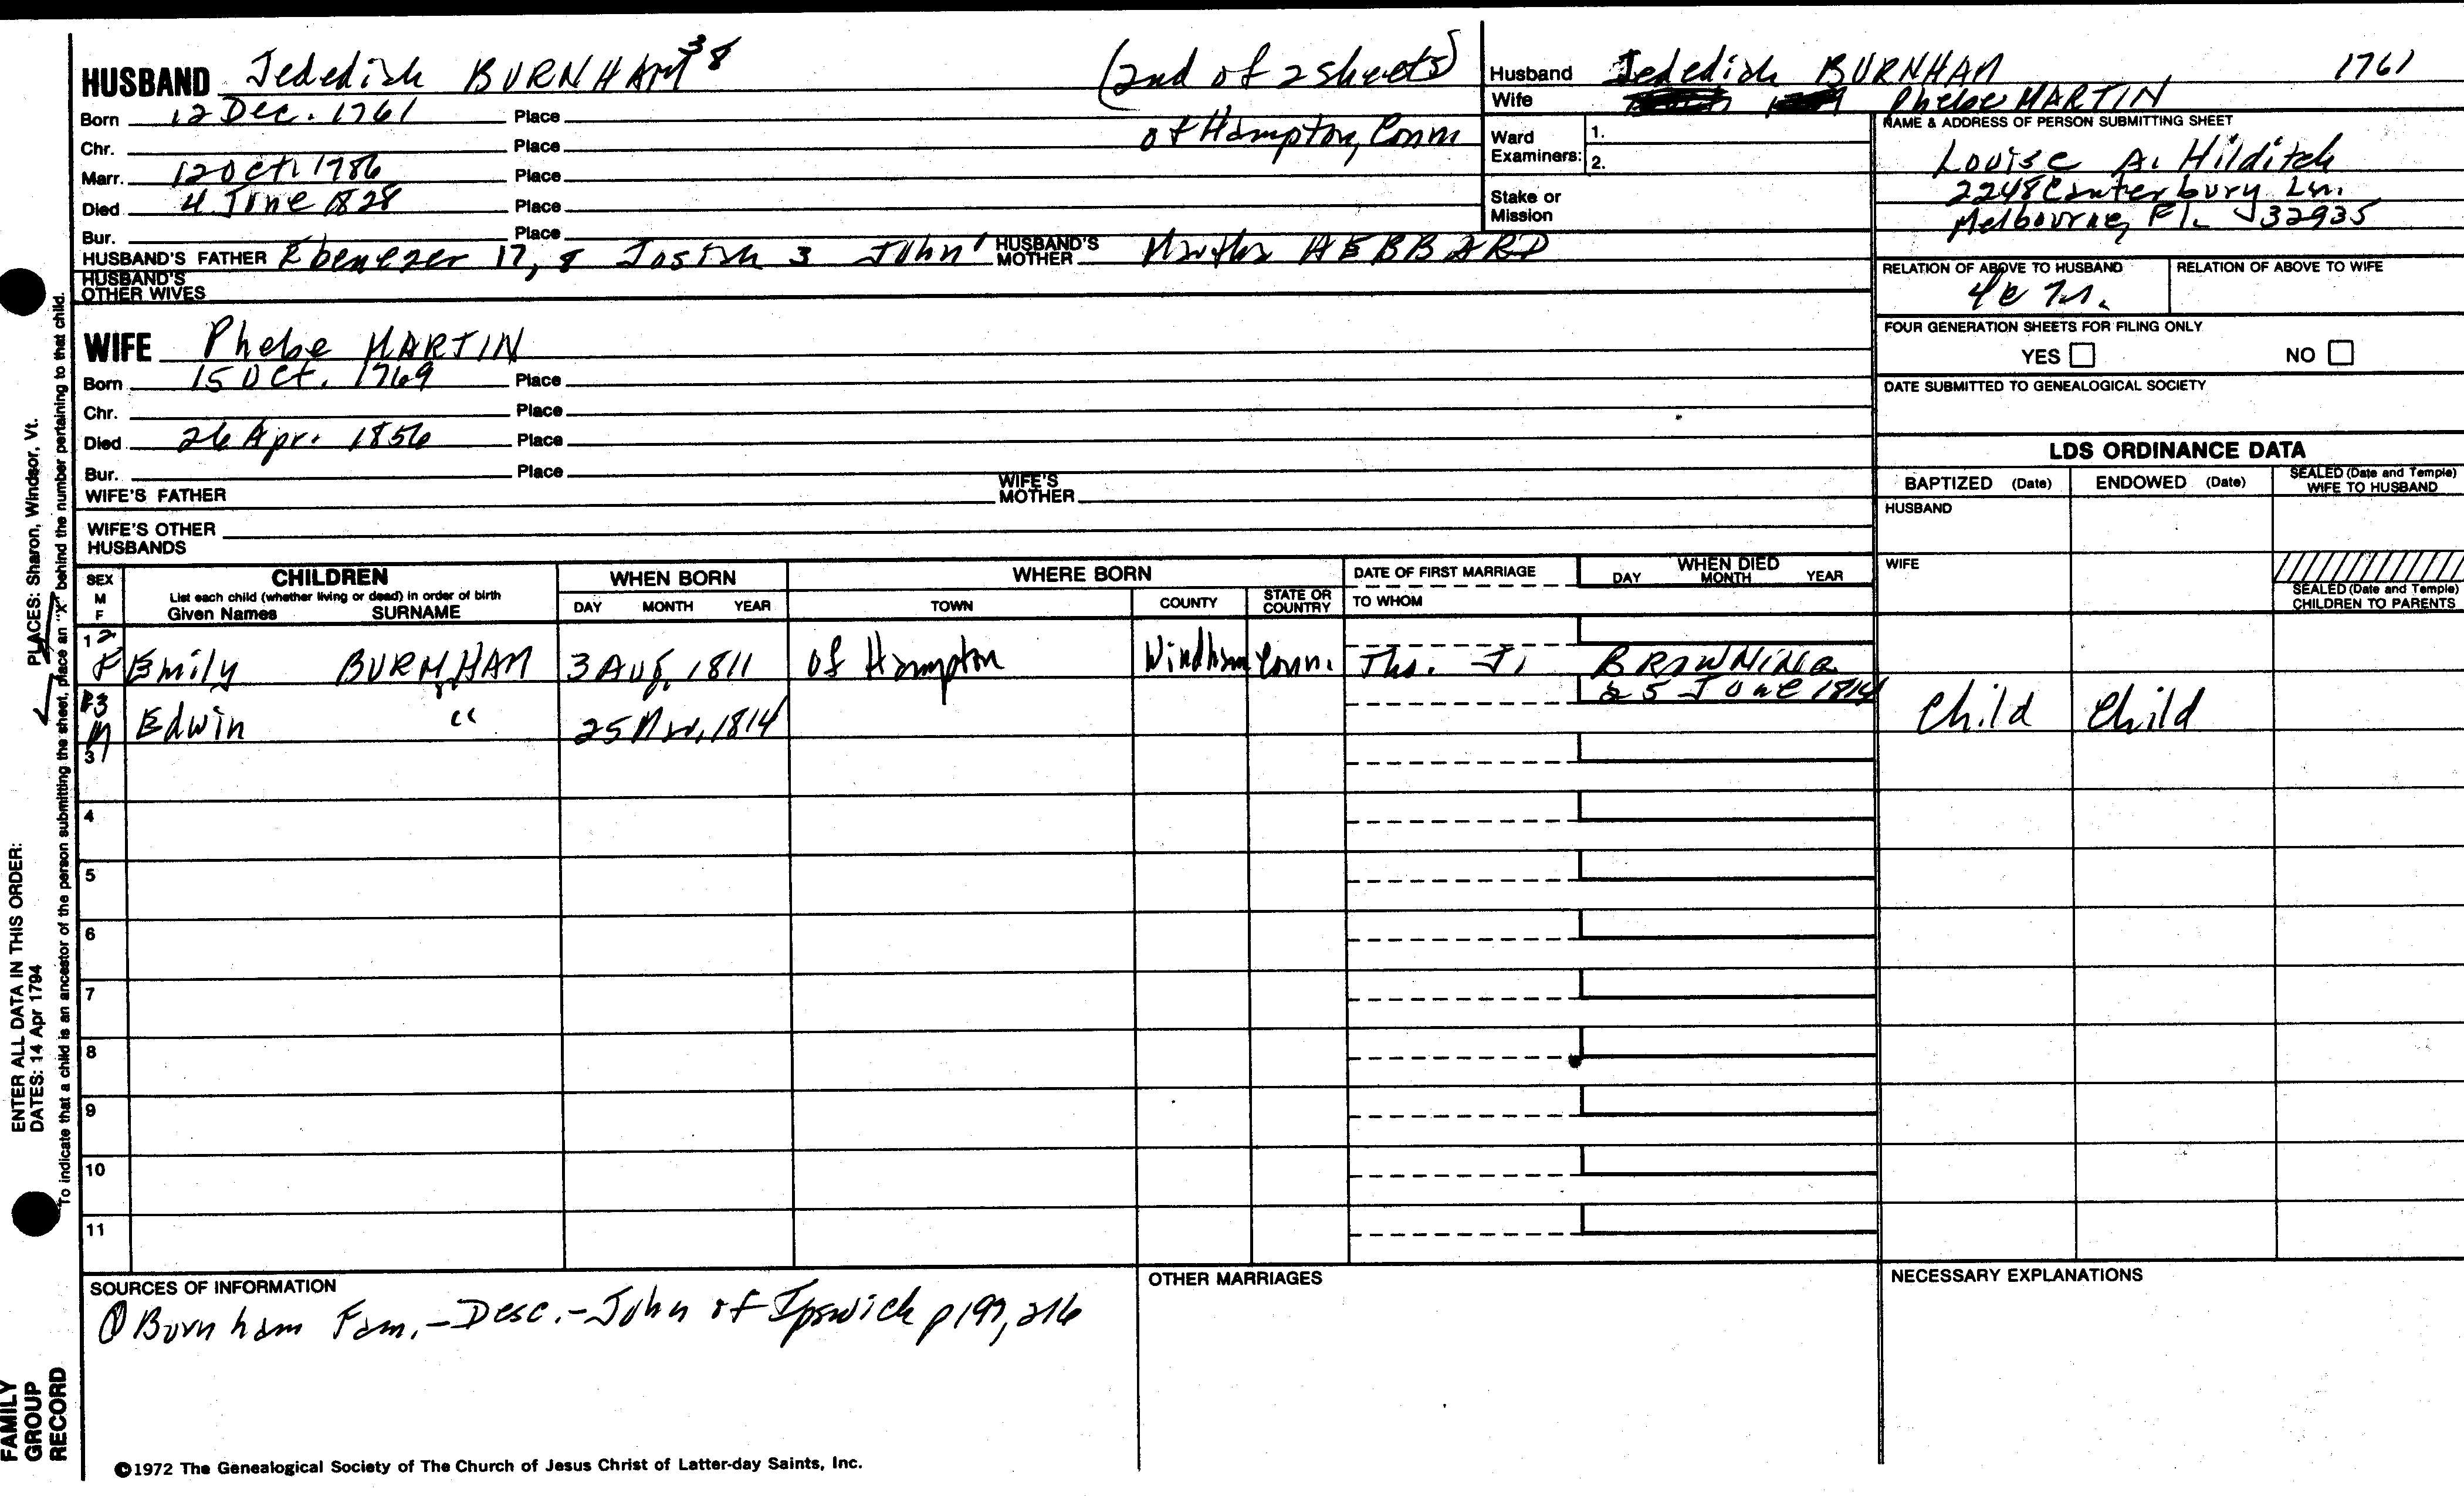 HUSBAND Jedediah BURNHAM 38 (2nd of 2 sheets)
Born 12 Dec. 1761 Place
of Hampton, Conn
Chr. Place
Marr. 12 Oct. 1786 Place
Died 4 June 1828 Place
Bur. Place
HUSBAND'S FATHER Ebenezer 17, 8 Josiah 3 John 1 HUSBAND'S MOTHER Martha HEBBARD
HUSBAND'S OTHER WIVES
WIFE Phebe MARTIN
Born 15 Oct. 1769 Place
Chr. Place
Died 26 Apr. 1856 Place
Bur. Place
WIFE'S FATHER WIFE'S MOTHER
WIFE'S OTHER HUSBANDS
Husband Jedediah BURNHAM 1761
Wife Phebe MARTIN
Ward Examiners: 1.
2.
Stake or Mission
NAME & ADDRESS OF PERSON SUBMITTING SHEET
Louise A. Hilditch
2248 Canterbury Ln.
Melbourne, Fl. 32935
RELATION OF ABOVE TO HUSBAND RELATION OF ABOVE TO WIFE
FOUR GENERATION SHEETS FOR FILING ONLY
YES NO
DATE SUBMITTED TO GENEALOGICAL SOCIETY
LDS ORDINANCE DATA
BAPTIZED (Date) ENDOWED (Date) SEALED (Date and Temple) WIFE TO HUSBAND
HUSBAND
WIFE
SEALED (Date and Temple) CHILDREN TO PARENTS
SEX M F
CHILDREN
List each child (whether living or dead) in order of birth
Given Names SURNAME
WHEN BORN
DAY MONTH YEAR
WHERE BORN
TOWN COUNTY STATE OR COUNTRY
DATE OF FIRST MARRIAGE
TO WHOM
WHEN DIED
DAY MONTH YEAR
1 2
F Emily BURNHAM 3 Aug. 1811 of Hampton Windham Conn. Tho. J. BROWNING
3 25 June 1814
M Edwin " 25 Mar. 1814 Child Child
3
4
5
6
7
8
9
10
11
SOURCES OF INFORMATION
① Burnham Fam. - Desc. - John of Ipswich p 197, 216
OTHER MARRIAGES
NECESSARY EXPLANATIONS
©1972 The Genealogical Society of The Church of Jesus Christ of Latter-day Saints, Inc.
PLACES: Sharon, Windsor, Vt.
ENTER ALL DATA IN THIS ORDER:
DATES: 14 Apr 1794
To indicate that a child is an ancestor of the person submitting the sheet, place an "X" behind the number pertaining to that child.
FAMILY
GROUP
RECORD